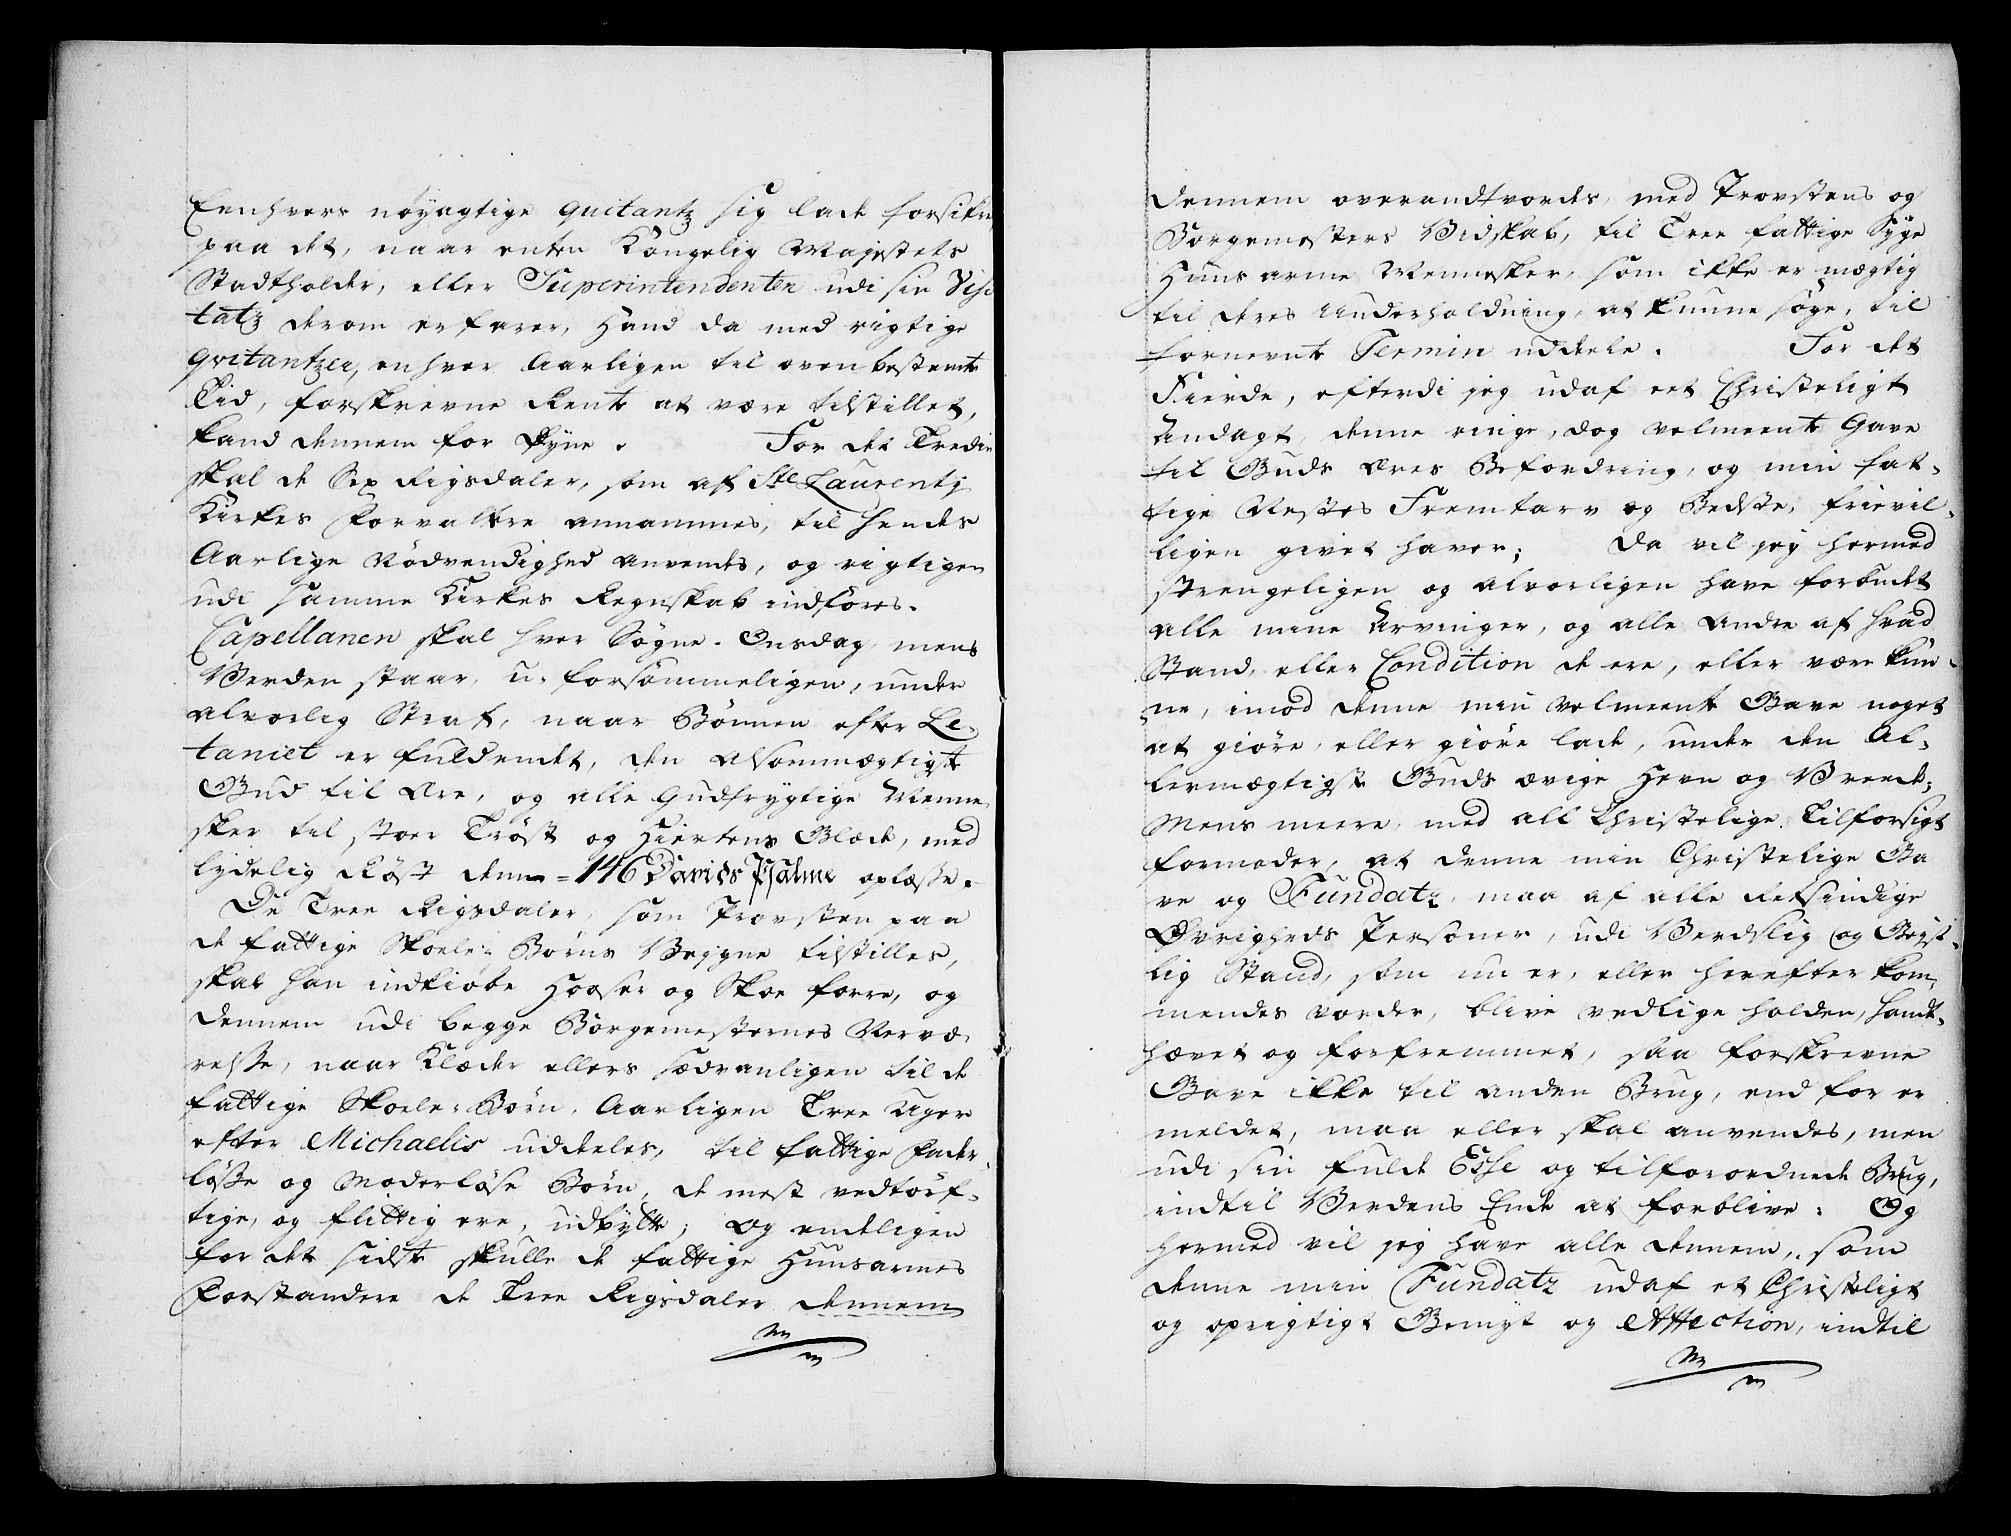 Eenhvers nöyagtige quitantz sig lade forsikre
paa det, naar enten Kongelig Majestets
Stadtholder, eller Superintendenten udi sin Visi
tatz derom erfarer, Hand da med rigtige
qvitantzer, enhver Aarligen til ovenbestemte
Tid, forskrevne Rente at være tilstillet,
kand dennem for Syne. For det Tredie
skal de Sex Rigsdaler, som af Ste Laurentj
Kirkes Forvaltere annammes, til hendes
Aarlige Nödvendighed anvendes, og rigtigen
udi samme Kirkes Regnskab indföres.
Capellanen skal hver Sögne-Onsdag, mens
Verden staar, u-forsömmeligen, under
alvorlig Straf, naar Bönnen efter Le-
taniet er fuldendet, den Alsommægtigste
Gud til Ære, og alle Gudfrygtige Menne-
sker til stoer Tröst og Hiertens Glæde, med
lydelig Röst denne = 146 Davids Psalme oplæsse.
De Tree Rigsdaler, som Provsten paa
de fattige Skoele-Börns Vegne tilstilles,
skal han indkiöbe Hooser og Skoe forre, og
dennem udi begge Borgemesternes Nervæ-
relsse, naar Klæder ellers sædvanligen til de
fattige Skoele-Börn, Aarligen Tree Uger
efter Michaelis uddeles, til fattige Fader-
lösse og Moderlöse Börn, de mest nedtörf-
tige, og flittig ere, udbytte; Og endeligen
for det sidste skulle de fattige Huusarmes
Forstandere de Tree Rigsdaler dennem
dennem overandtvordes, med Provstens og
Borgemesters Vidskab, til Tree fattige Syge
Huus arme Mennesker, som ikke er mægtig
til deres Underholdning, at kunne söge, til
fornevnte Termin uddele. For det
Fierde, efterdi jeg udaf eet Christeligt
Andagt, denne ringe, dog velmeente Gave
til Guds Æres Befordring, og min fat-
tige Nestes Fremtarv og Bedste, frievil-
ligen givet haver; Da vil jeg hermed
strengeligen og alvorligen have forbudet
alle mine Arvinger, og alle Andre af hvad
Stand, eller Condition de ere, eller være kun-
ne, imod denne min velmeente Gave noget
at giöre, eller giöre lade, under den Al-
lermægtigste Guds ævige Hevn og Vrede;
Mens meere, med all Christelige Tilforsigt
formoder, at denne min Christelige Ga
ve og Fundatz, maa af alle Retsindige
Övrigheds Personer, udi Verdslig og Geist-
lig Stand, som nu er, eller herefter kom-
mendes vorder, blive vedlige holden, handt-
hævet og forfremmet, saa forskrevne
Gave ikke til anden Brug, end for er
meldet, maa eller skal anvendes, men
udi sin fulde Esse og tilforordnede Brug,
indtil Verdens Ende at forblive. Og
hermed vil jeg have alle dennem, som
denne min Fundatz udaf et Christeligt
og oprigtigt Gemyt og Affection, indtil